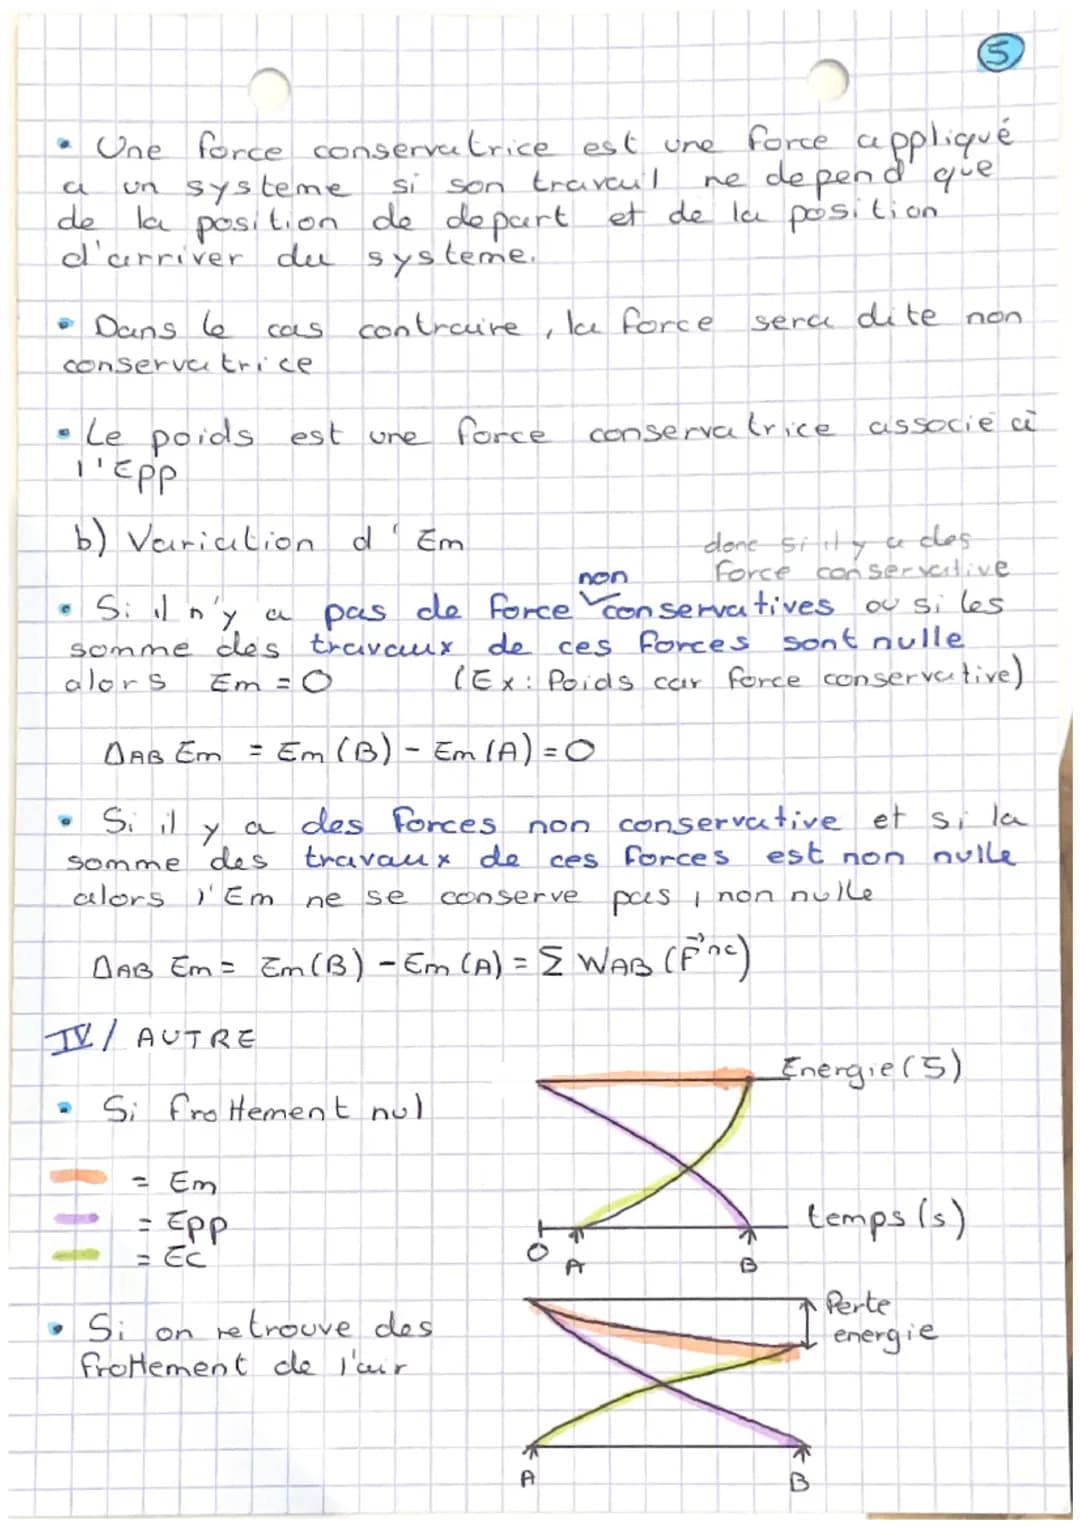 5
• Une force conservatrice est une force appliqué
a un systeme si son travail ne depend que
de la position de depart et de la position
d'arriver du systeme.
• Dans le cas contraire, la force sera dite non
conservatrice
• Le poids est une force conservatrice associé à
l'Epp
b) Variation d'Em
donc si il y a des
force conservative
non
• Si il n'y a pas de force conservatives ou si les
somme des travaux de ces forces sont nulle
alors Em = 0 (Ex: Poids car force conservative)
ΔAB Em = Em (B) - Em (A) = 0
• Si il y a des forces non conservative et si la
somme des travaux de ces forces est non nulle
alors l'Em ne se conserve pas, non nulle
ΔAB Em = Em (B) - Em (A) = Σ WAB (F⃗nc)
IV/ AUTRE
• Si frottement nul
Energie (J)
= Em
= Epp
= EC
temps (s)
O
A
B
• Si on retrouve des
frottement de l'air
Perte
energie
A
B